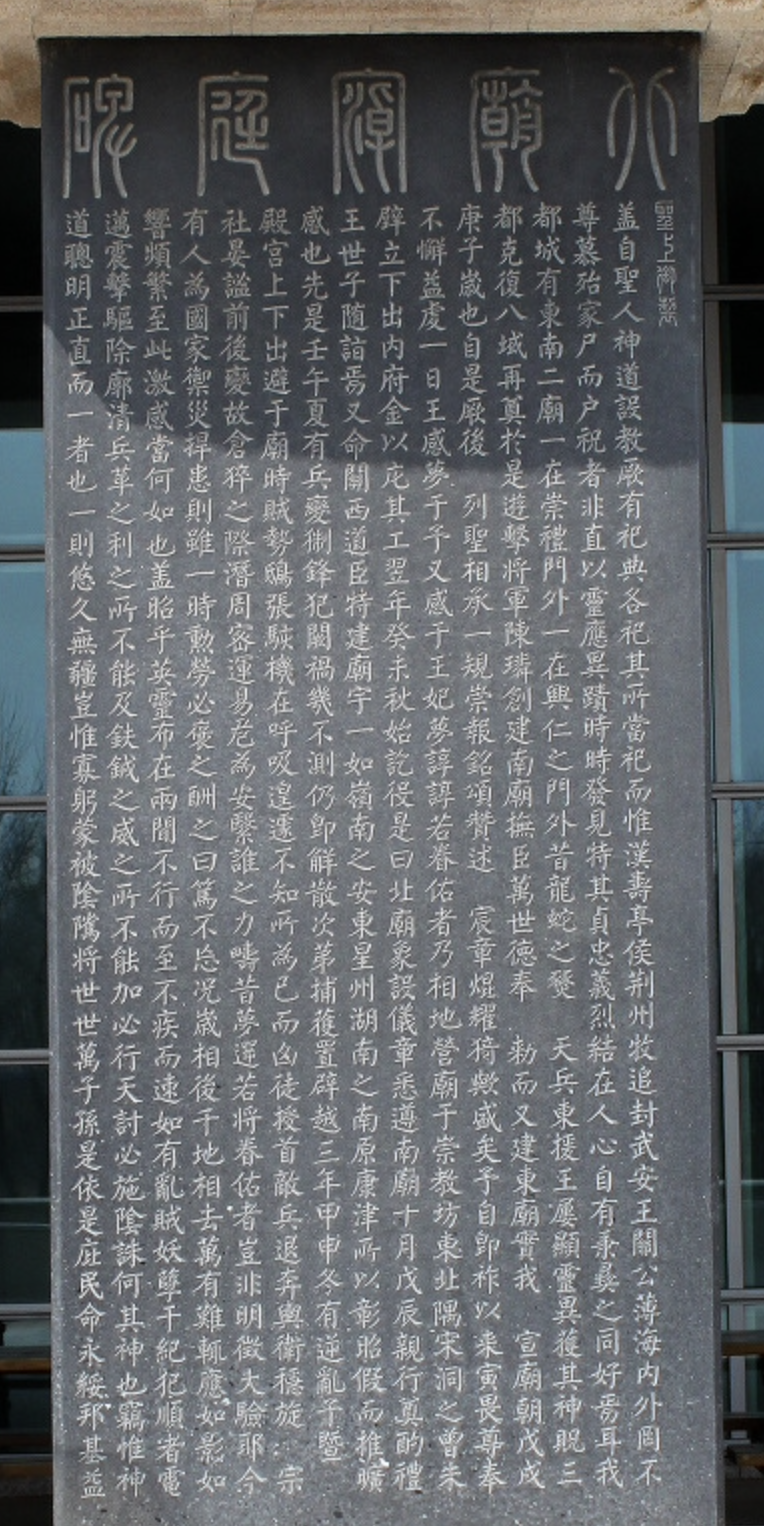 北廟廟庭碑
蓋自聖人神道設教厥有祀典各祀其所當祀而惟漢壽亭侯荊州牧追封武安王關公薄海內外罔不
尊慕殆家尸而户祝者非直以靈應異蹟時時發見特其貞忠義烈結在人心自有秉彝之同好焉耳我
都城有東南二廟一在崇禮門外一在興仁之門外昔龍蛇之燹 天兵東援王屢顯靈異獲其神貺三
都克復八域再奠於是遊擊將軍陳璘創建南廟撫臣萬世德奉 勑而又建東廟實我 宣廟朝戊戌
庚子歲也自是厥後 列聖相承一規崇報銘頌贊述 宸章焜耀猗歟盛矣予自卽祚以來寅畏尊奉
不懈益虔一日王感夢于予又感于王妃夢諄諄若眷佑者乃相地營廟于崇教坊東北隅宋洞之曾朱
壁立下出內府金以庀其工翌年癸未秋始訖役是曰北廟象設儀章悉遵南廟十月戊辰親行奠酌禮
王世子隨詣焉又命關西道臣特建廟宇一如嶺南之安東星州湖南之南原康津所以彰昭假而推曠
感也先是壬午夏有兵變衝鋒犯闕禍幾不測仍卽解散次第捕蓰置辟越三年甲申冬有逆亂予暨
殿宮上下出避于廟時賊勢鴟張駭機在呼吸遑遽不知所為已而凶徒授首敵兵退奔輿衛穩旋 宗
社晏謐前後變故倉猝之際潛周密運易危為安繄誰之力疇昔夢遌若將眷佑者豈非明徵大驗耶今
有人為國家禦災捍患則雖一時勳勞必褒之酬之曰篤不忘况歲相後千地相去萬有難輒應如影如
響頻繁至此激感當何如也蓋昭乎英靈布在兩間不行而至不疾而速如有亂賊妖孽干紀犯順者電
邁震擊驅除廓清兵革之利之所不能及鈇鉞之威之所不能加必行天討必施陰誅何其神也竊惟神
道聰明正直而一者也一則悠久無疆豈惟寡躬蒙被陰騭将世世萬子孫是依是庇民命永綏邦基益